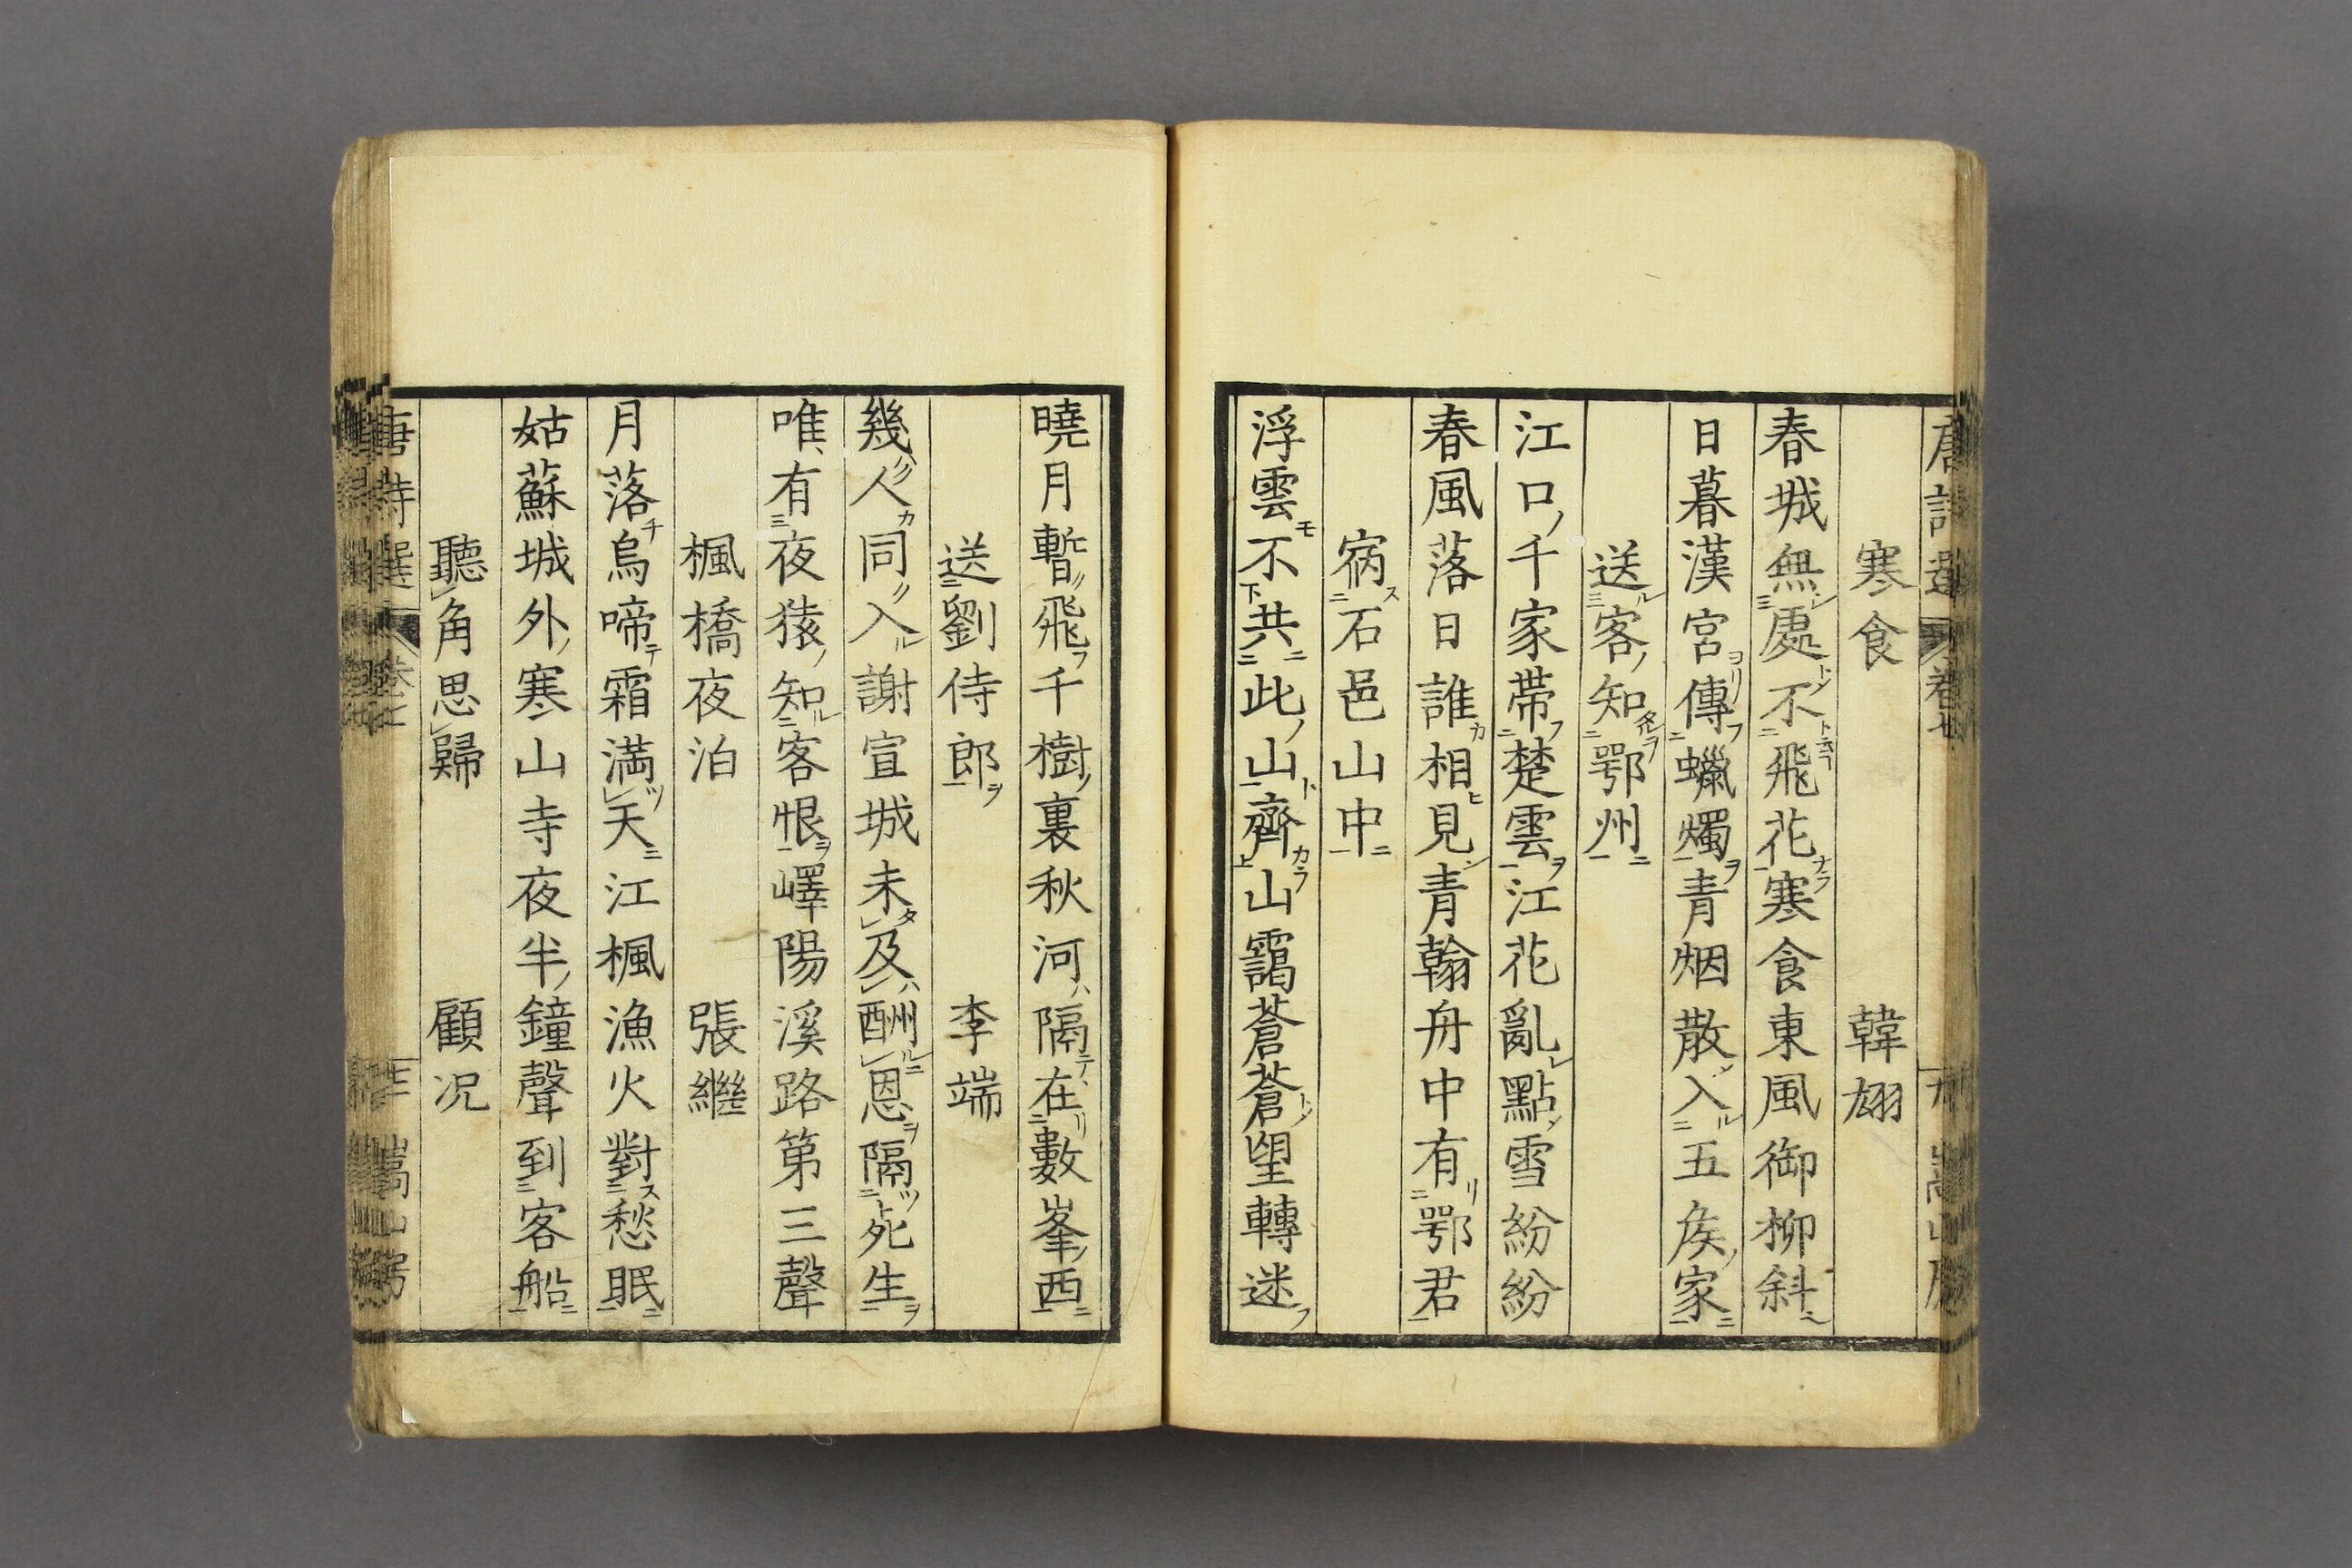 寒食　韓翃
春城無處不飛花寒食東風御柳斜
日暮漢宮傳蠟燭青烟散入五侯家
送客知鄂州
江口千家帶楚雲江花亂點雪紛紛
春風落日誰相見青翰舟中有鄂君
宿石邑山中
浮雲不共此山齊山靄蒼蒼望轉迷
曉月暫飛千樹裏秋河隔在數峯西
送劉侍郎　李端
幾人同入謝宣城未及酬恩隔死生
唯有夜猿知客恨嶧陽溪路第三聲
楓橋夜泊　張繼
月落烏啼霜滿天江楓漁火對愁眠
姑蘇城外寒山寺夜半鐘聲到客船
聽角思歸　顧况